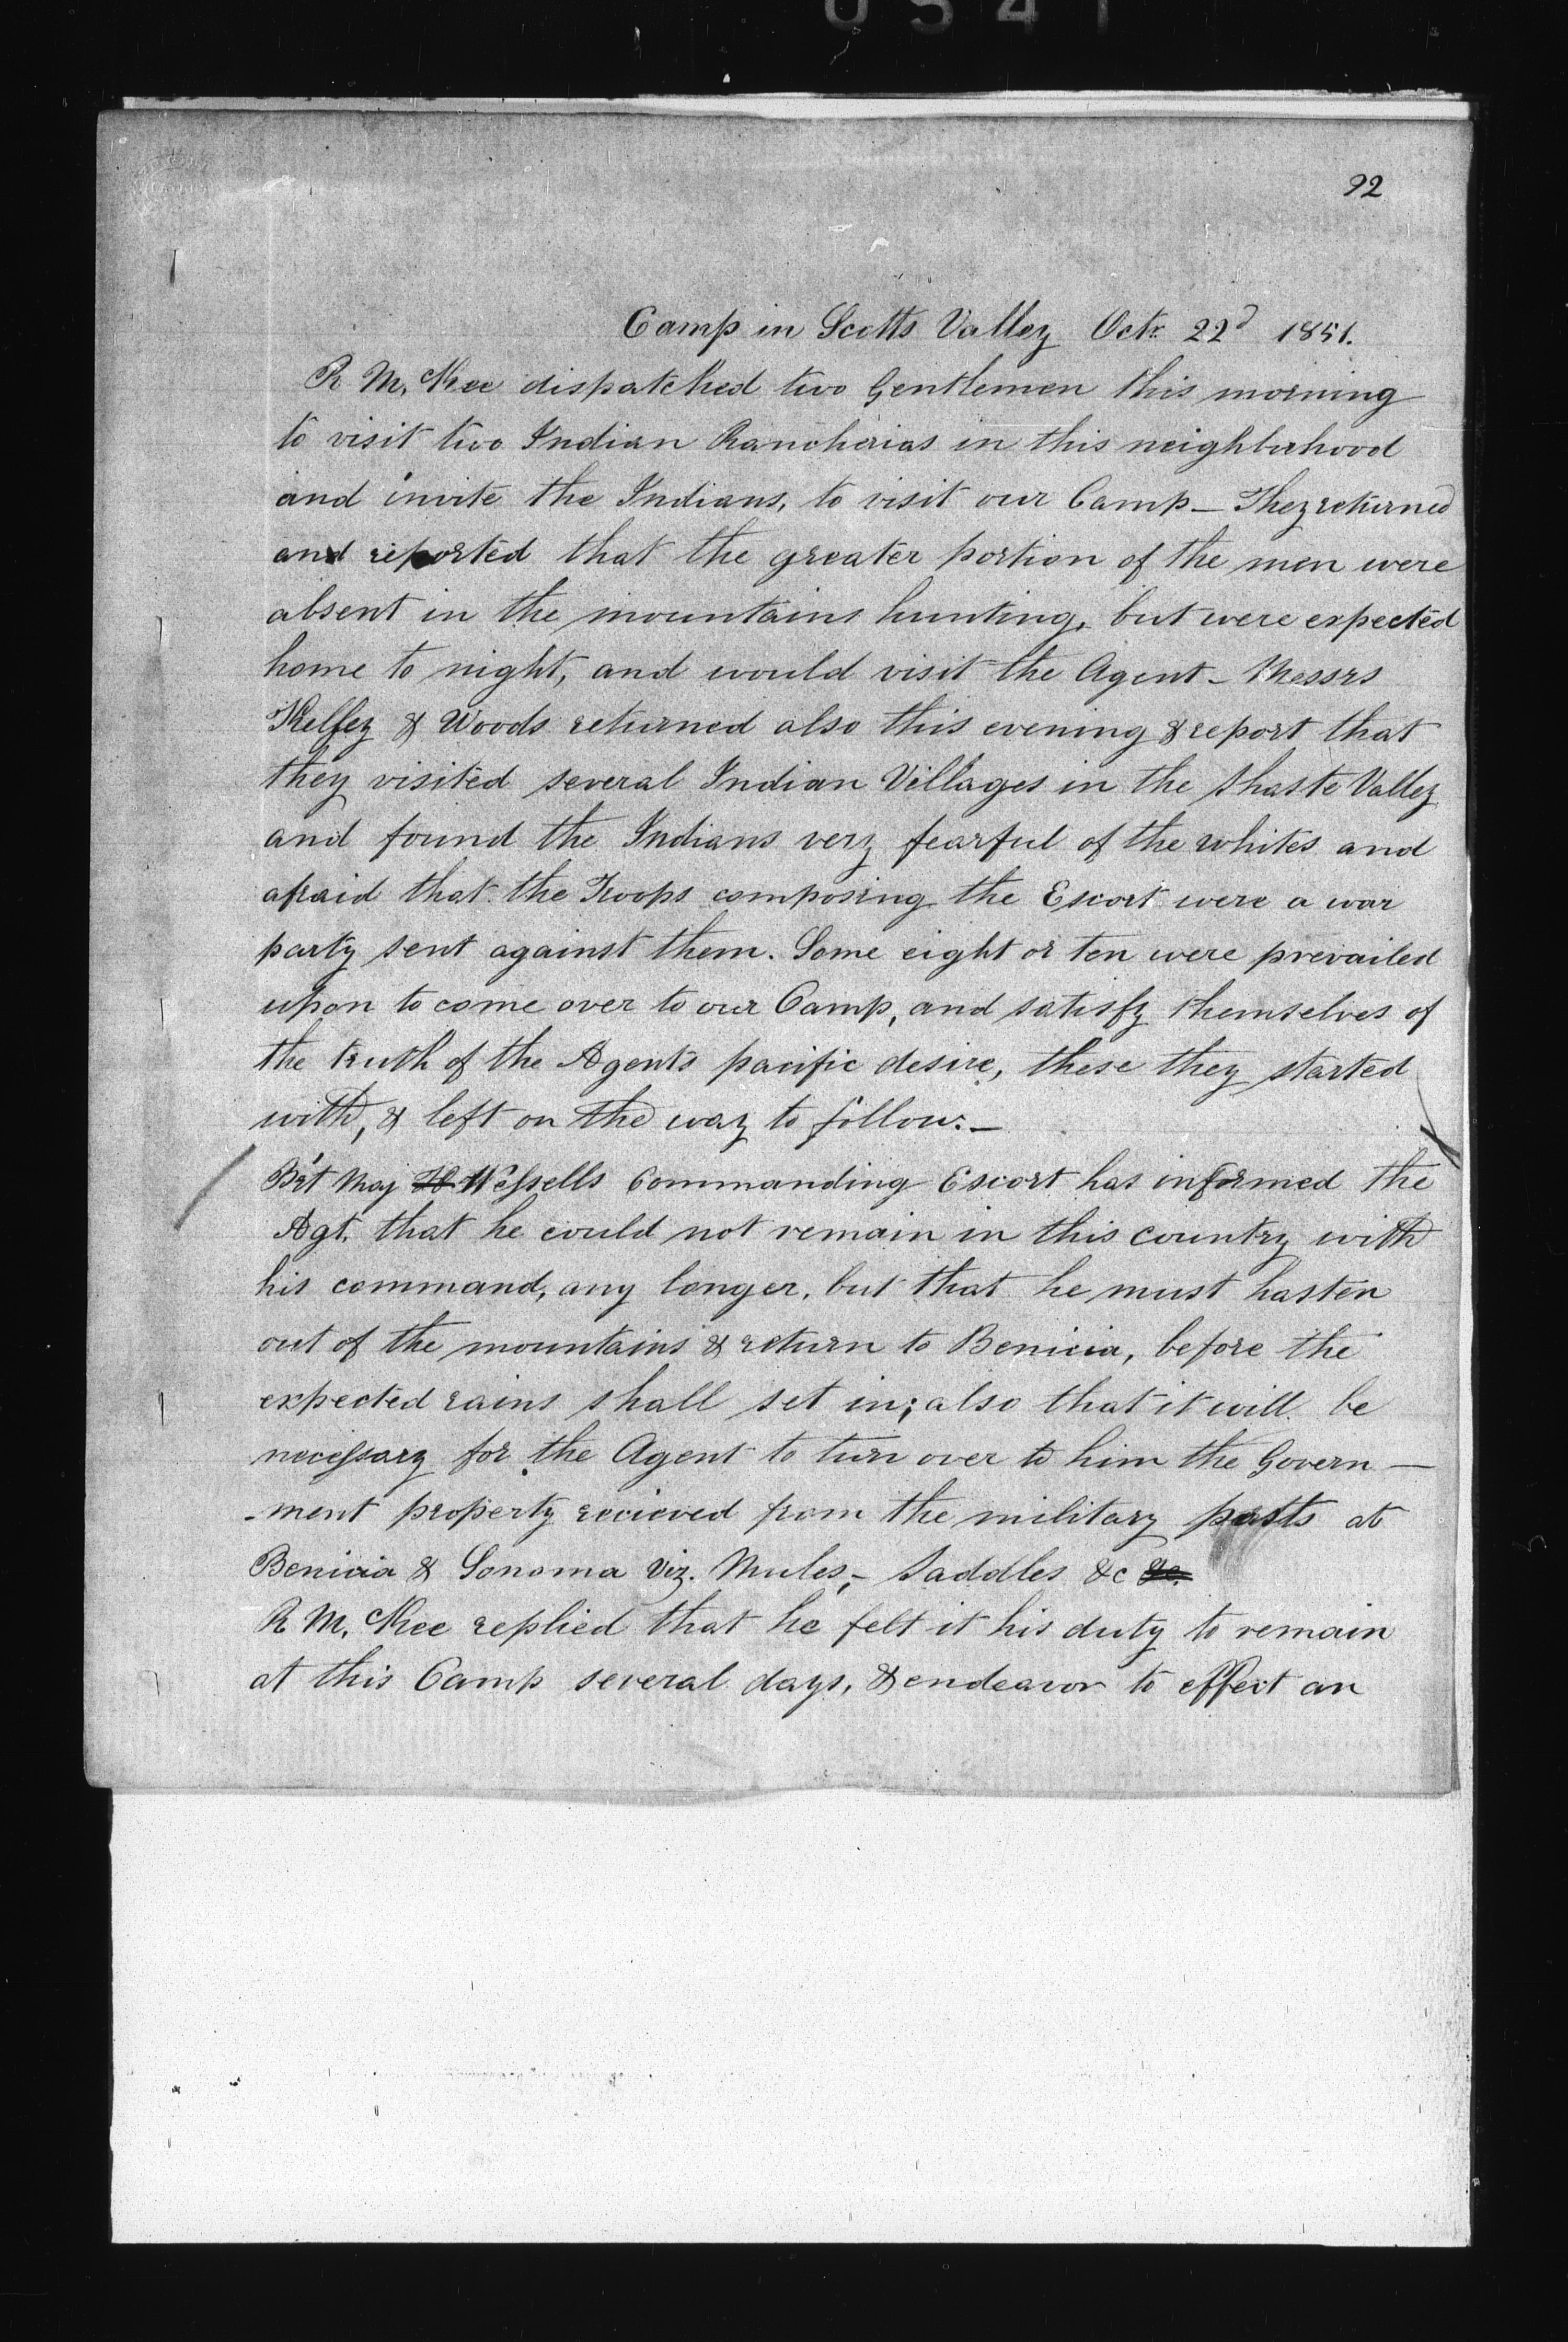 0541
92
Camp in Scotts Valley Octr. 22d 1851.
R M,cKee dispatched two Gentlemen this morning
to visit two Indian Rancherias in this neighborhood
and invite the Indians, to visit our Camp _ They returned
and reported that the greater portion of the men were
absent in the mountains hunting, but were expected
home to night, and would visit the Agent _ Messrs
Kelsey & Woods returned also this evening & report that
they visited several Indian Villages in the Shaste Valley
and found the Indians very fearful of the whites and
afraid that the Troops composing the Escort were a war
party sent against them. Some eight or ten were prevailed
upon to come over to our Camp, and satisfy themselves of
the truth of the Agents pacific desire, these they started
with, & left on the way to follow. _
Bvt Maj Wessells Commanding Escort has informed the
Agt. that he could not remain in this country with
his command, any longer, but that he must hasten
out of the mountains & return to Benicia, before the
expected rains shall set in; also that it will be
necessary for the Agent to turn over to him the Govern —
-ment property recieved from the military posts at
Benicia & Sonoma Viz. Mules, _ Saddles &c &c.
R M,cKee replied that he felt it his duty to remain
at this Camp several days, & endeavor to effect an